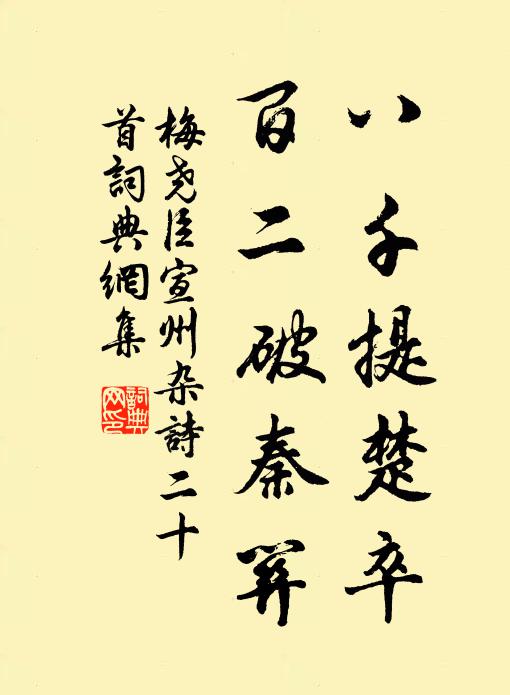 八千提楚卒
百二破秦關
梅尧臣宣州杂詩二十
首詞典網集
詞典
网印